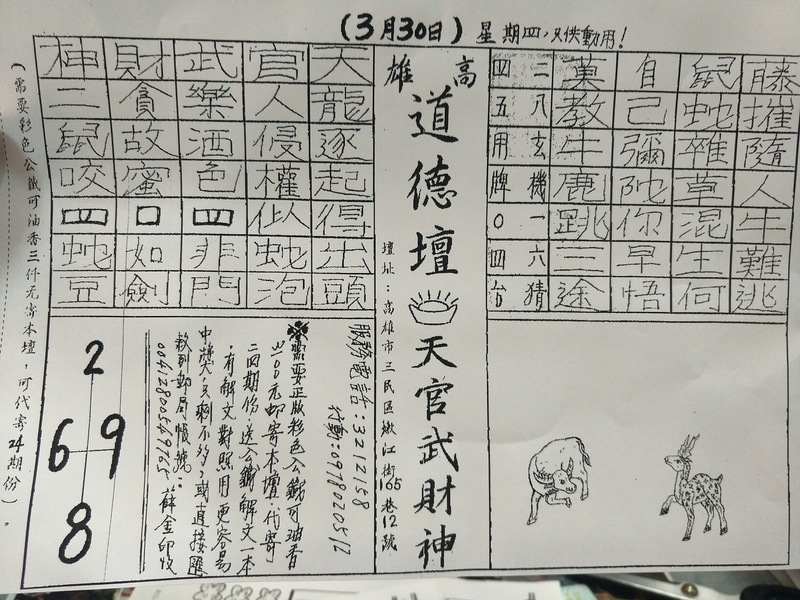 (3月30日) 星期四,又供動用!
藤摧隨人牛難逃
鼠蛇雜草混生何
自己彌陀你早悟
葉教牛鹿跳三途
二八玄機一六猜
四五用牌0四台
高雄
道德壇
天官武財神
壇址:高雄市三民區嫩江街165巷12號
天龍逐起得出頭
官人侵權似蛇泡
武樂酒色四非門
財貪故蜜口如劍
神二鼠咬四蛇豆
服務電話:3212158
行動:0978020512
需要正版彩色公籤可油香
300元郵寄本壇代寄
二四期份.送公籤解文一本
.有解文對照用更容易
中獎,
郵局帳號:
2
6 9
8
(需要彩色公籤可油香三仟元寄本壇,可代寄24期份)。